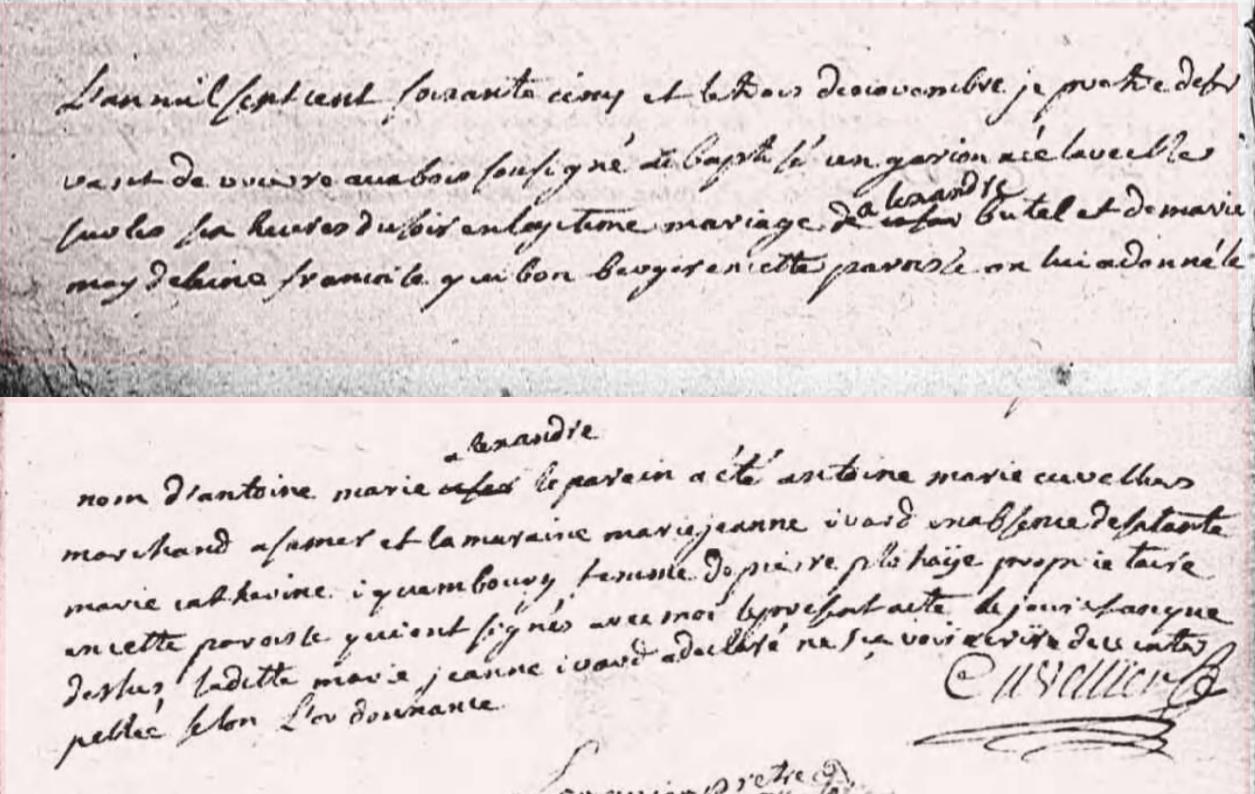 L'an mil sept cent soixante cinq et le trois de novembre je pretre deser
vant de vierre au bois soussigné ai baptisé un garson née la veille
sur les six heures du soir en legitime mariage de alexandre butel et de marie
magdeleine francoise quibon berger en cette paroisse on lui a donné le
nom d'antoine marie alexandre le parein a été antoine marie cuvellier
marchand a samer et la maraine marie jeanne ivard en absence de sa tante
marie catherine iquembourg femme de pierre haije proprietaire
en cette paroisse qui ont signés avec moi le present acte le jour et an que
dessus laditte marie jeanne ivard a declaré ne sçavoir écrire de ce inter
pellée selon L'ordonnance
Cuvellier
pretre